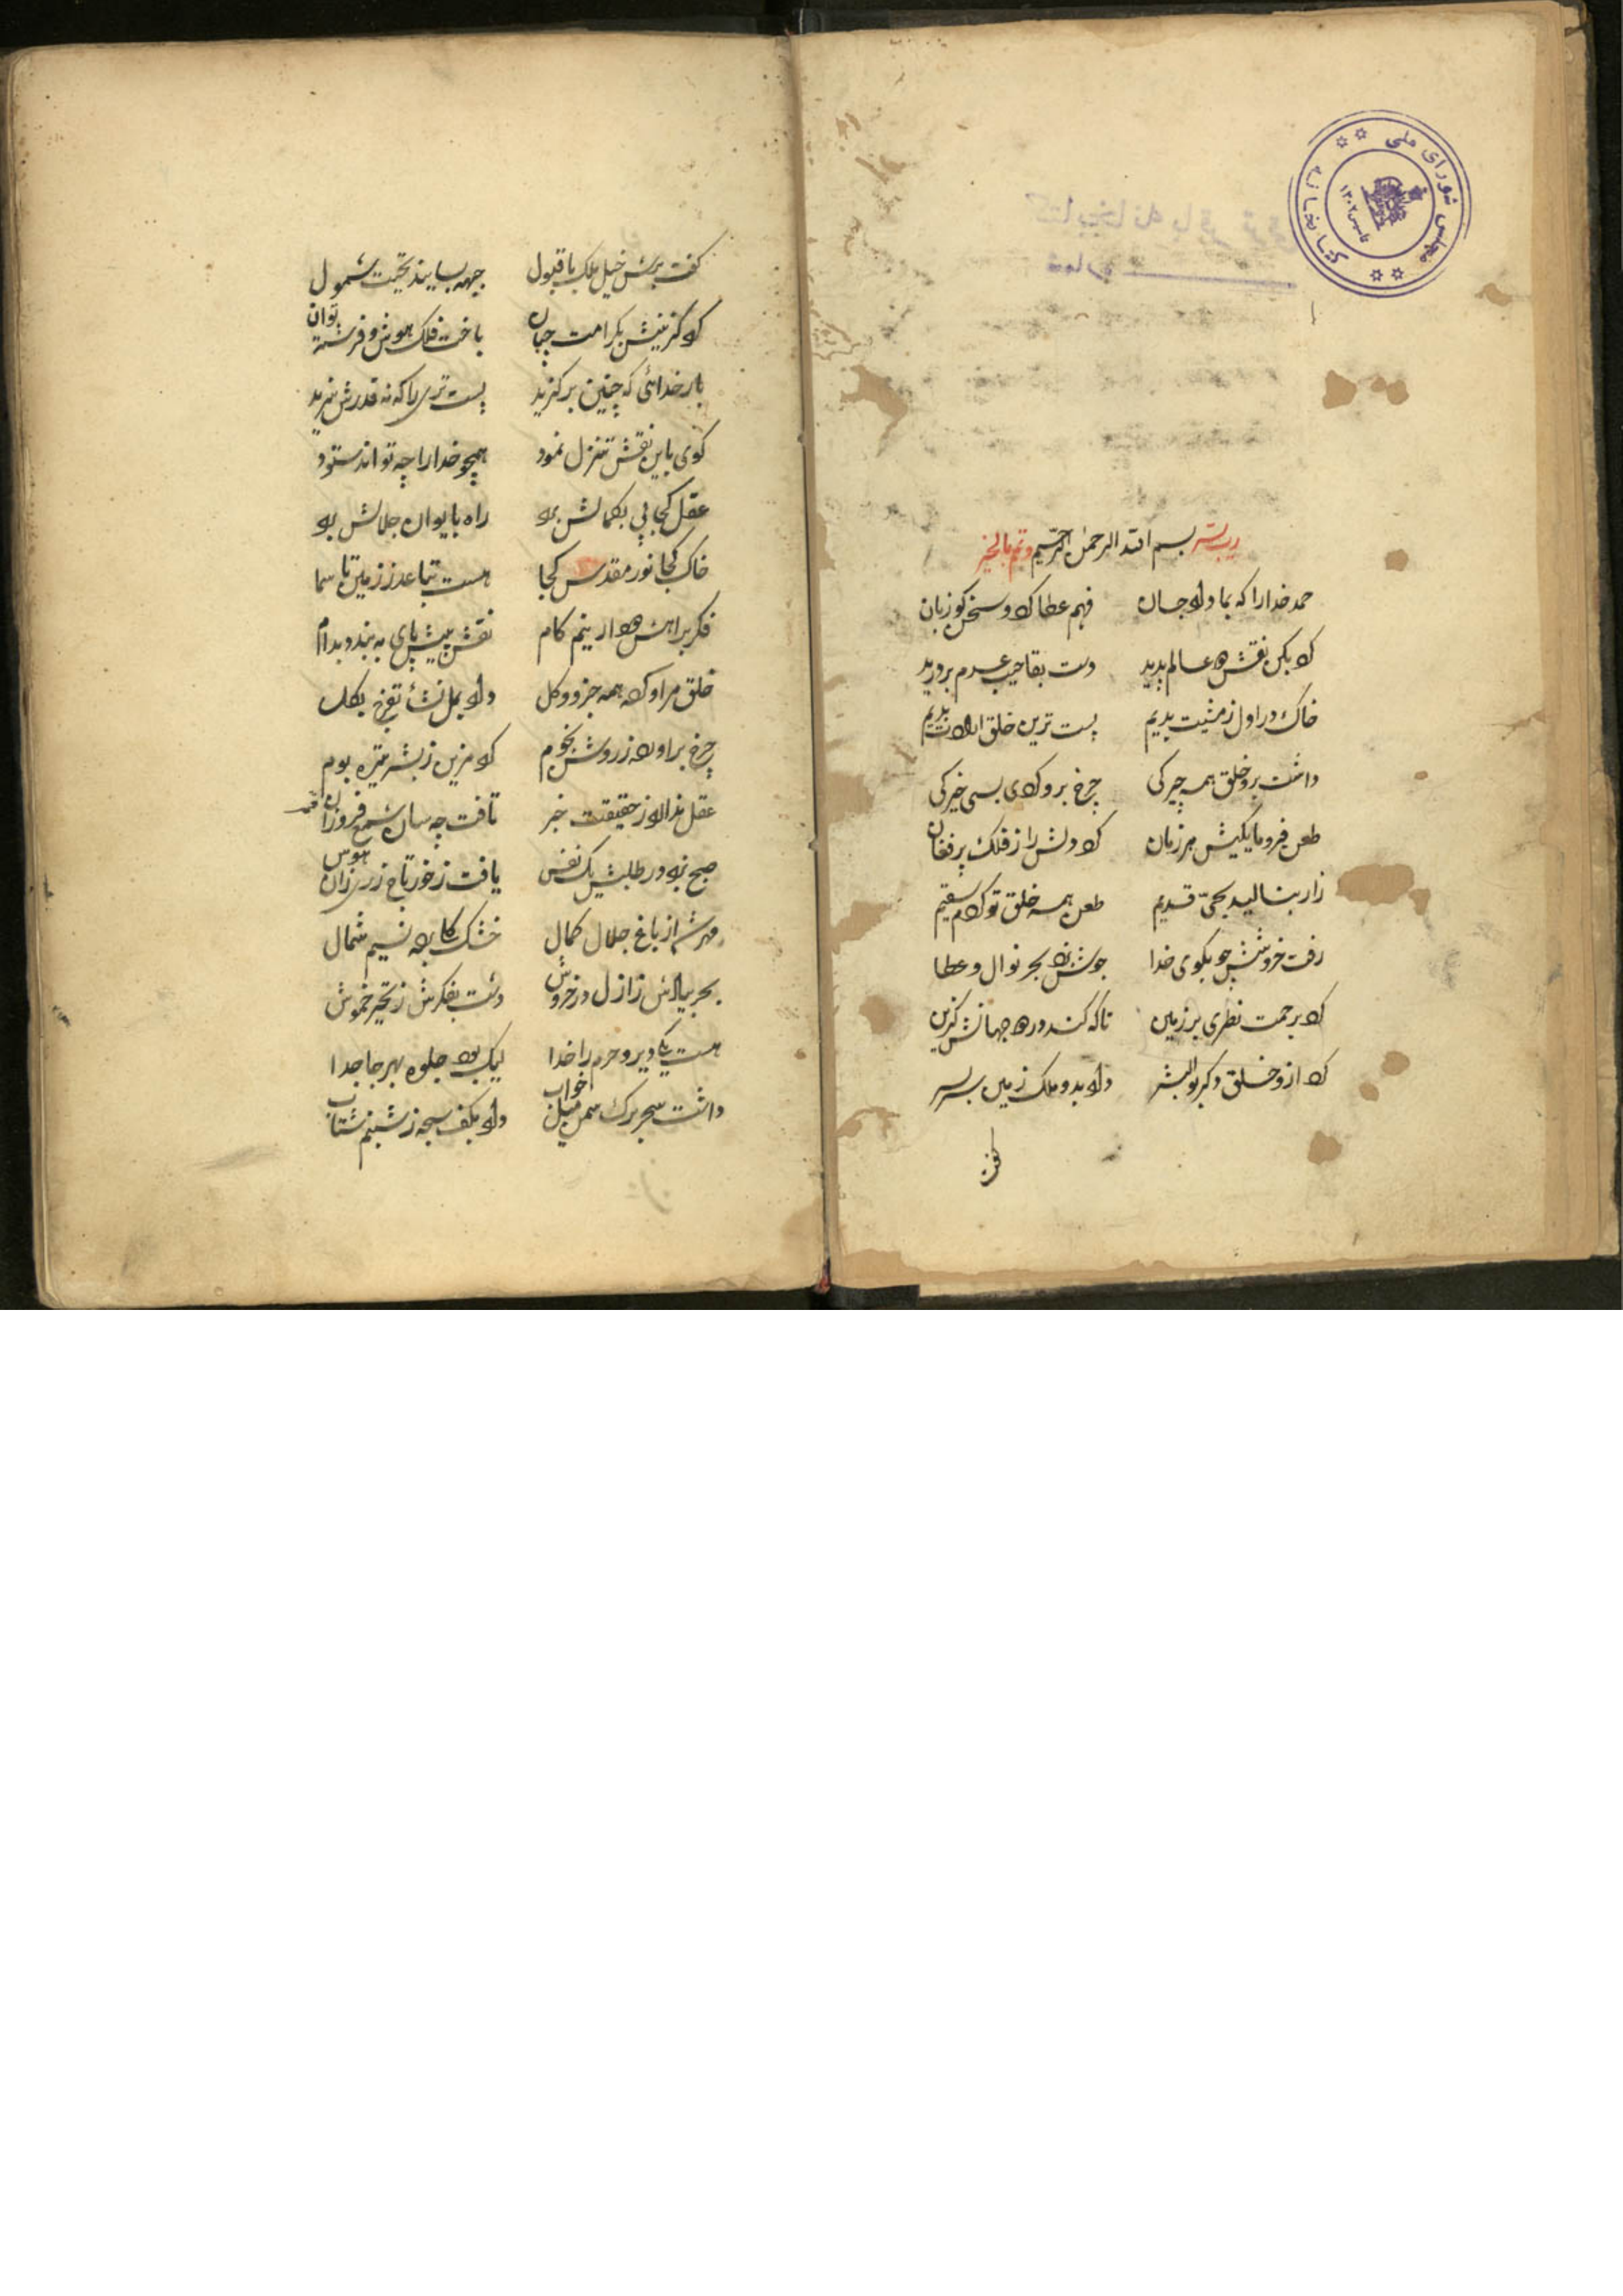 کتابخانه مجلس شورای ملی
تاسیس ۱۳۰۲
رب یسر بسم الله الرحمن الرحیم و تمم بالخیر
حمد خدا را که بما داد جان فهم عطا کرد و سخن کو زبان
کرد بکن نقش دو عالم پدید دست بقا جیب عدم بر درید
خاک در اول ز مشیت بدیم پست ترین خلق
داشت برو خلق همه چیرکی چرخ برو کردی بسی خیرکی
طعن فرومایکیش هر زمان کرد دلش را ز فلک پر فغان
زار بنالید بحی قدیم طعن همه خلق تو کردم سقیم
رفت خروشش چو بکوی خدا جوش زد بحر نوال و عطا
کرد برحمت نظری بر زمین تا که کند در دو جهانش کزین
کرد ازو خلق دکر بوالبشر داد بدو ملک زمین سر بسر
کفت
کفت برش خیل ملک با قبول جبهه بسایند تحیت شمول
کرد کزینش بکرامت چنان باخت فلک هوش و فرشته توان
بار خدائی که چنین بر کزید پست تری را که نه قدرش مزید
کوی باین نقش تنزل نمود همچو خدا را چه تواند ستود
عقل کجا پی بکمالش برد راه بایوان جلالش برد
خاک کجا نور مقدس کجا هست تباعد ز زمین تا سما
فکر براهش نهد ار نیم کام نقش پیش پای به بندد بدام
خلق مر او کرد همه جزو و کل داد بمل نشأ تفرح بکل
چرخ برآورد ز روشن نجوم کرد مزین ز بشر تیره بوم
عقل ندارد ز حقیقت خبر تافت چه سان شمع فروزان قمر
صبح نبرد در طلبش یک نفس یافت ز خور تاج زر
مهر از باغ جلال کمال خشک نسیم شمال
بحر ز ازل در خروش دشت بفکرش ز تحیر خموش
هست یکی دیر و حرم را خدا لیک بود جلوه بهر جا جدا
داشت سحر برک سمن میل خواب داد بکف سبحه ز شبنم شتاب